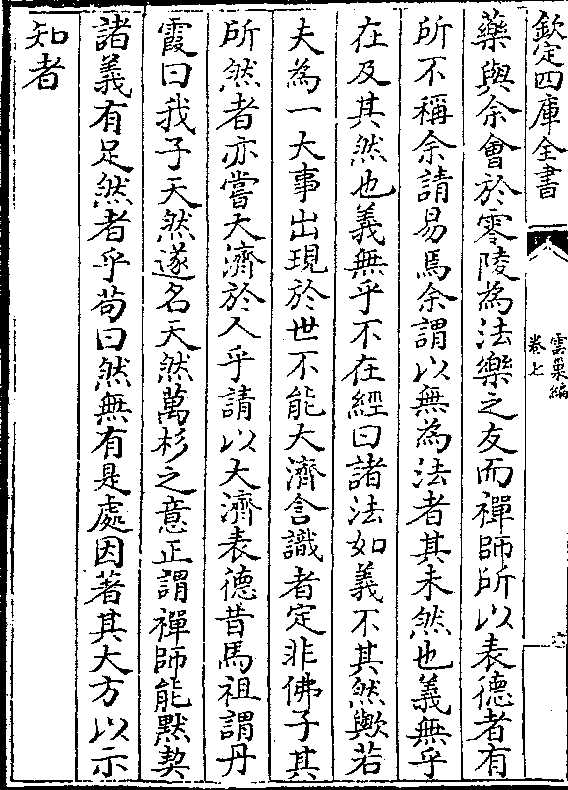 欽定四庫全書
雲巢編
卷七
藥與余會於零陵為法樂之友而禪師所以表德者有
所不稱余請易焉余謂以無為法者其未然也義無乎
在及其然也義無乎不在經曰諸法如義不其然歟若
夫為一大事出現於世不能大濟含識者定非佛子其
所然者亦嘗大濟於人乎請以大濟表德昔馬祖謂丹
霞曰我子天然遂名天然萬杉之意正謂禪師能黙契
諸義有足然者乎苟曰然無有是處因著其大方以示
知者